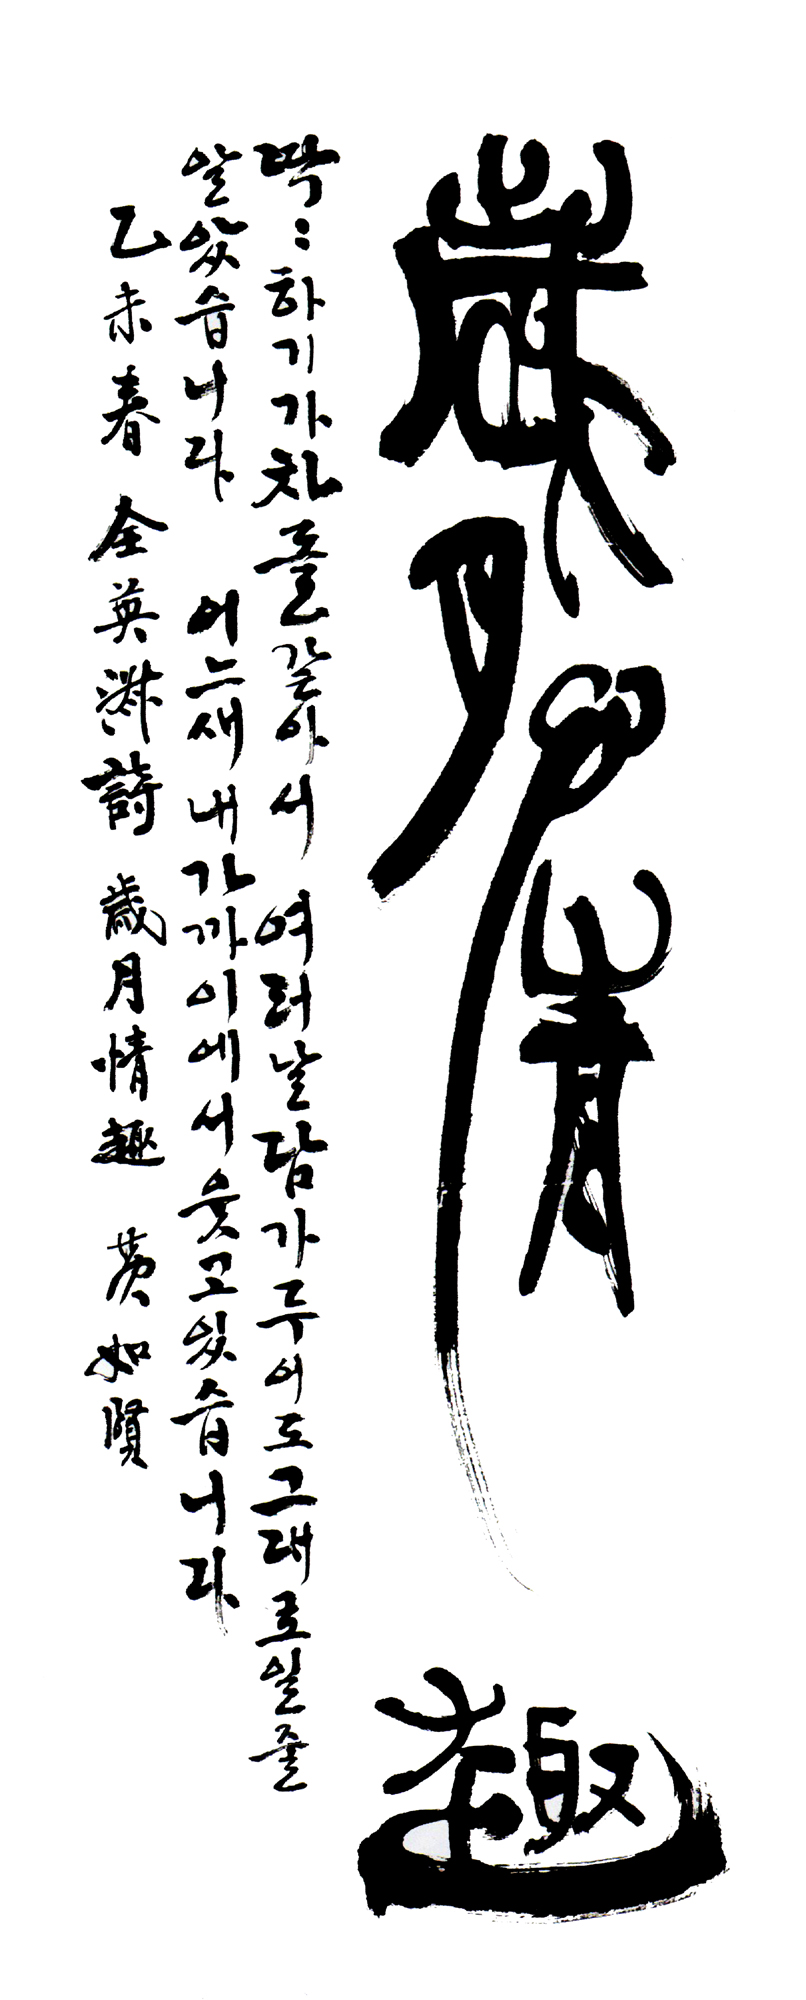 歲月情趣
딱：하기가차돌같아서 여러날담가두어도그대로일줄
알았습니다 어느새내가까이에서웃고있습니다
乙未春 全英淋詩 歲月情趣 黃如賢